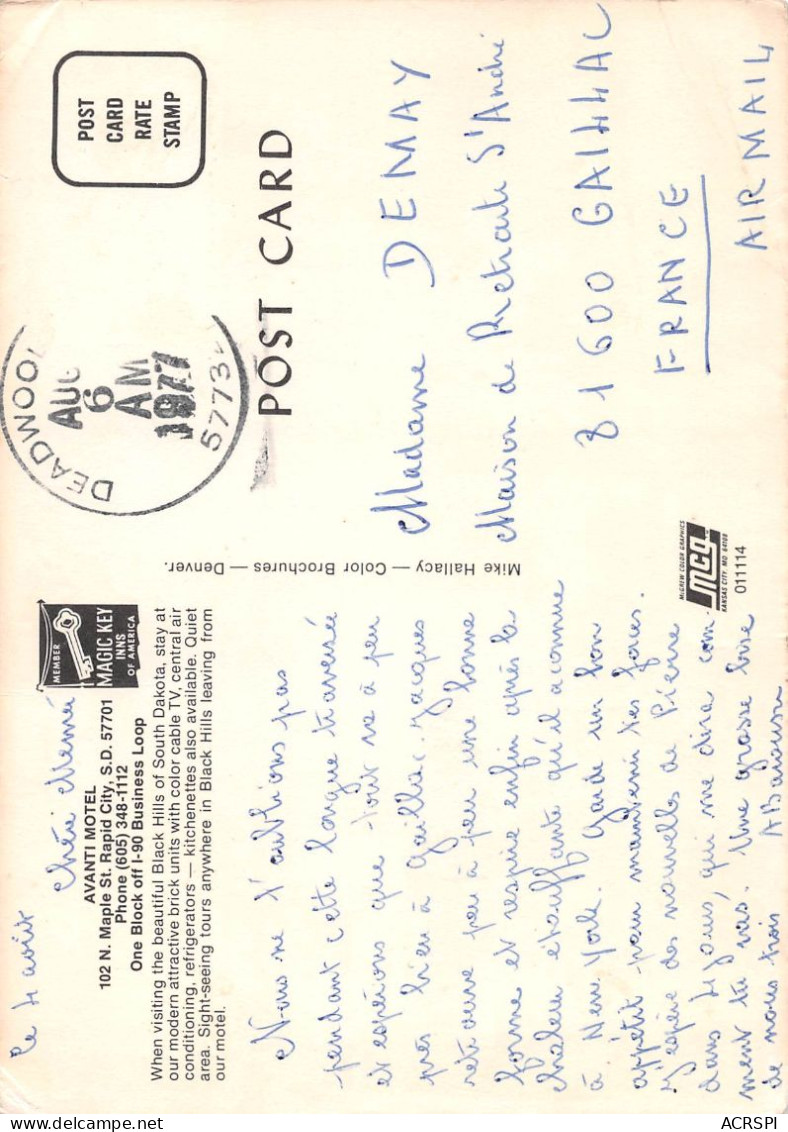 Le 4 août
Chère Mémé
AVANTI MOTEL
102 N. Maple St. Rapid City, S.D. 57701
Phone (605) 348-1112
One Block off I-90 Business Loop
MEMBER
MAGIC KEY
INNS
OF AMERICA
When visiting the beautiful Black Hills of South Dakota, stay at
our modern attractive brick units with color cable TV, central air
conditioning, refrigerators — kitchenettes also available. Quiet
area. Sight-seeing tours anywhere in Black Hills leaving from
our motel.
Nous ne t'oublions pas
pendant cette longue traversée
et espérons que tout va à peu
près bien à Gaillac. Jacques
retrouve peu à peu une bonne
forme et respire enfin après la
chaleur étouffante qu'il a connue
à New York. Garde un bon
appétit pour maintenir tes forces.
J'espère des nouvelles de Pierre
dans 4 jours, qui me dira com-
ment tu vas. Une grosse bise
de nous trois
Mike Hallacy — Color Brochures — Denver.
McGREW COLOR GRAPHICS
MCG
KANSAS CITY, MO. 64108
011114
DEADWOO
AUG
6
AM
1977
5773
POST
CARD
RATE
STAMP
POST CARD
Madame DEMAY
Maison de Retraite St André
81600 GAILLAC
FRANCE
AIR MAIL
ACRSPI